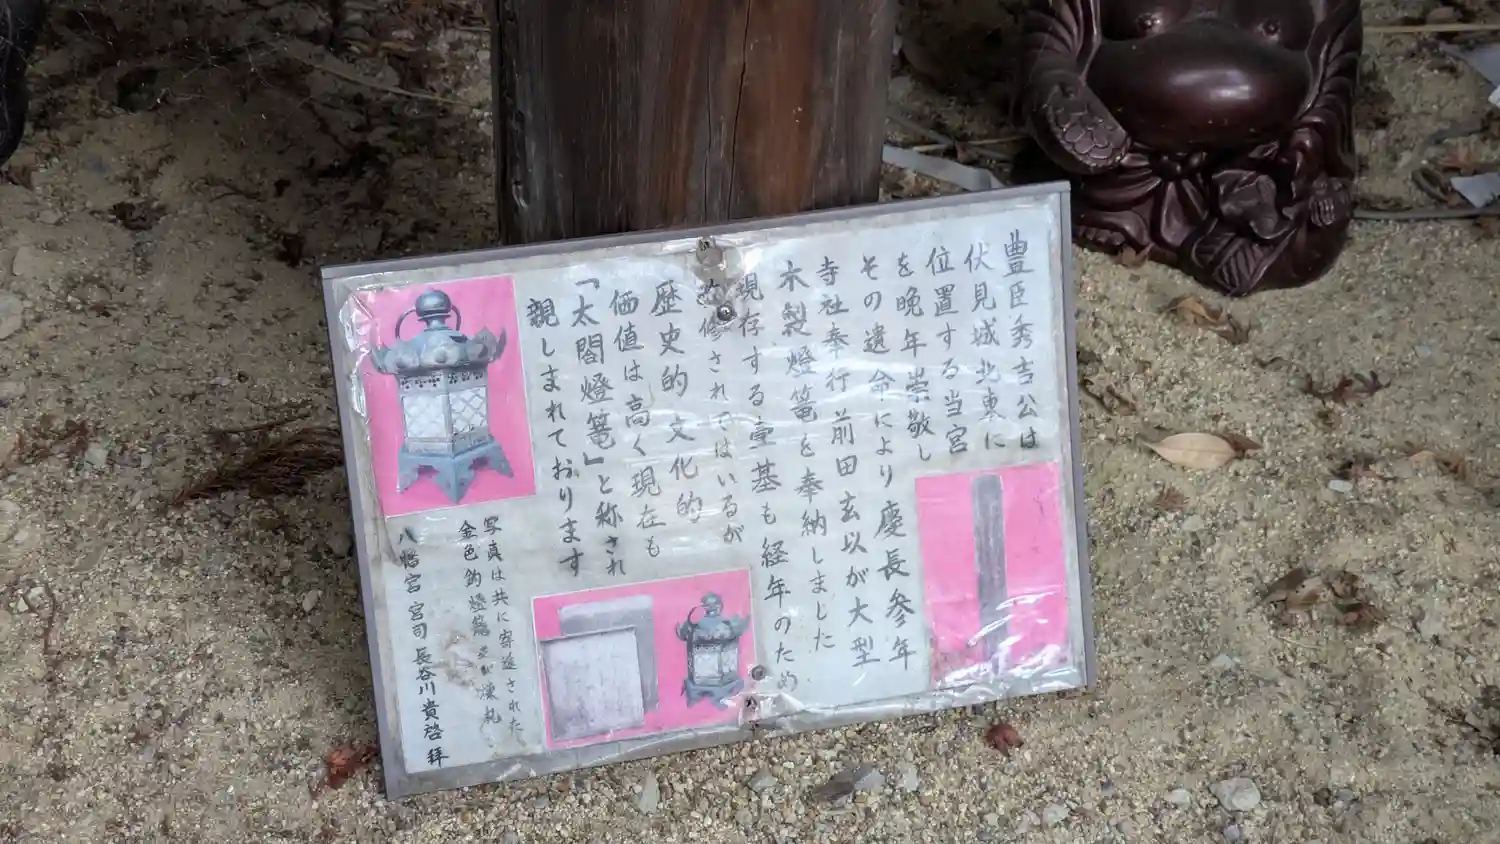 豊臣秀吉公は
伏見城北東に
位置する当宮
を晩年崇敬し
その遺命により慶長参年
寺社奉行前田玄以が大型
木製燈篭を奉納しました
現存する壷基も経年のため
修されてはいるが
歴史的文化的
価値は高く現在も
「太閤燈篭」と称され
親しまれております
写真は共に寄進された
金色釣燈籠及び棟札
八幡宮宮司長谷川貴啓拝